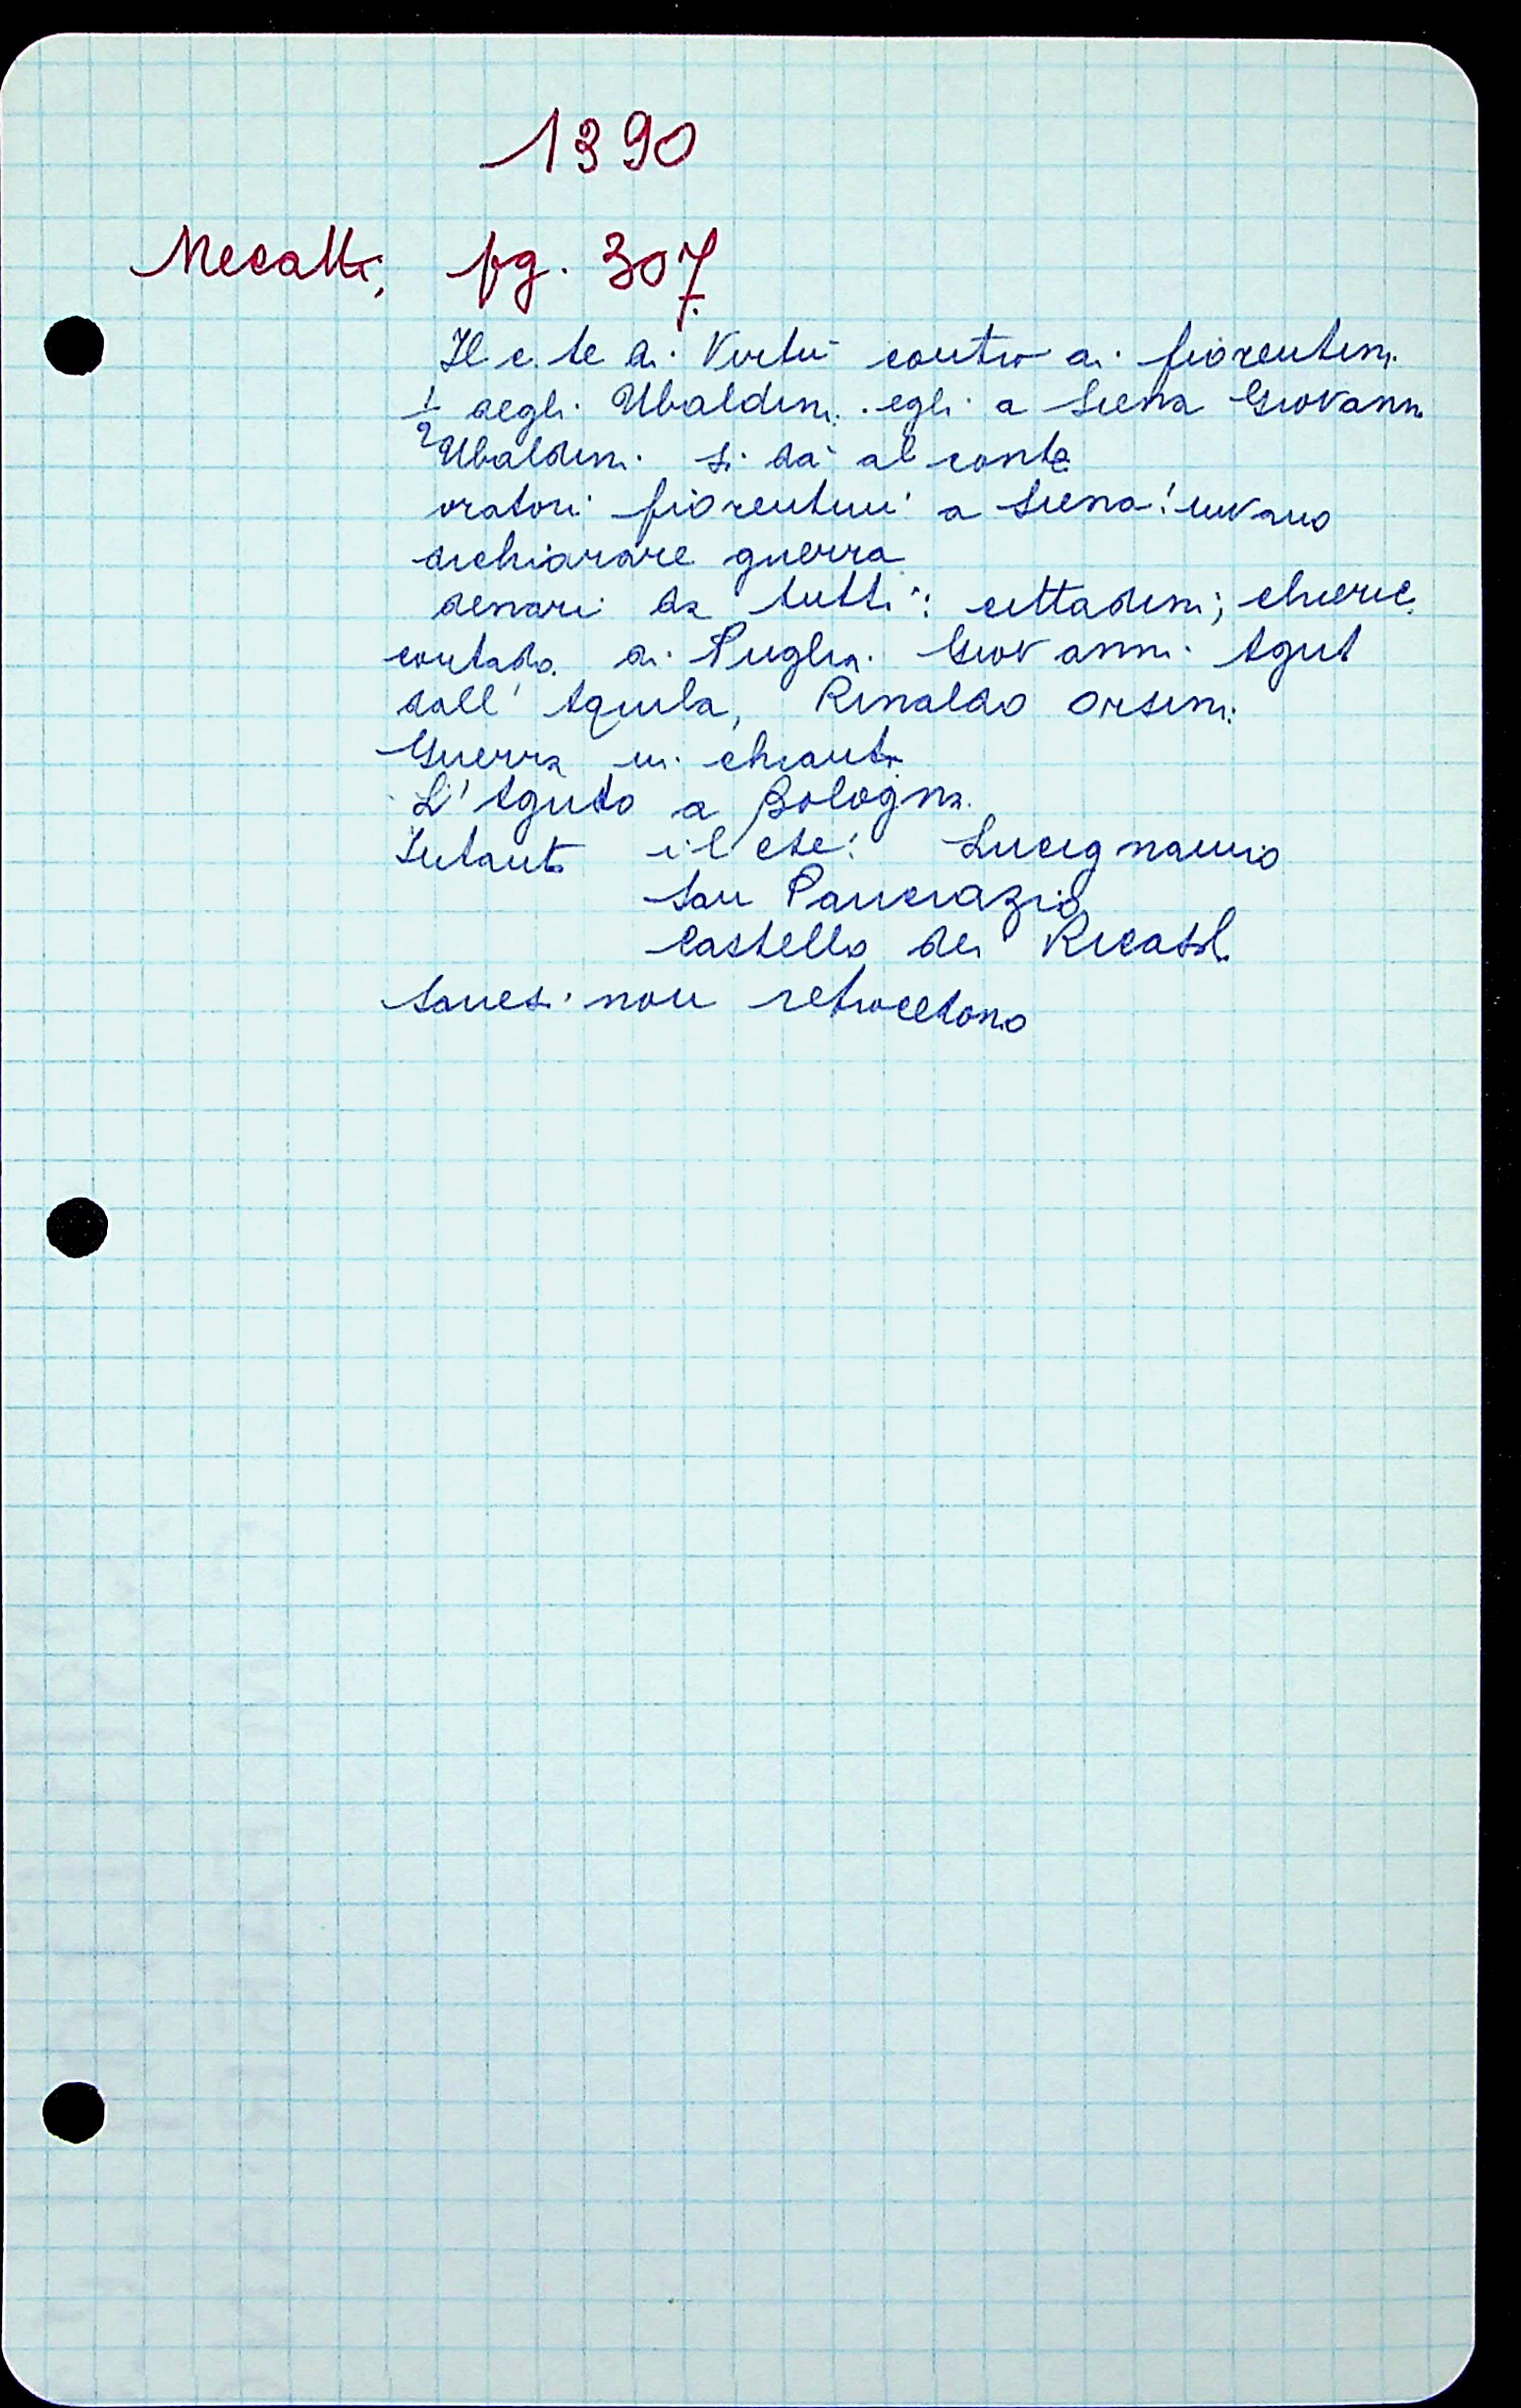 1390
Mecatti, pg. 307.
Il c.te di Virtù contro ai fiorentini
1/2 degli Ubaldini. egli a Siena Giovanni
Ubaldini si dà al conte
oratori fiorentini a Siena! invano
dichiarare guerra
denari da tutti: cittadini; chieric.
contado. di Puglia. Giovanni Agut
dall' Aquila, Rinaldo Orsini.
Guerra in chianti
L'Aguto a Bologna.
Intanto il cte: Lucignanno
San Pancrazio
Castello dei Ricasol.
Sanesi non retrocedono